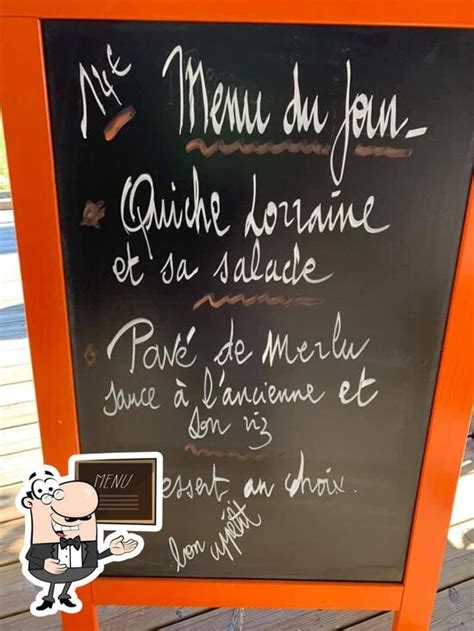 14€ Menu du Jour
Quiche Lorraine
et sa salade
Pavé de Merlu
sauce à l'ancienne et
son riz
MENU
essert au choix.
bon appétit